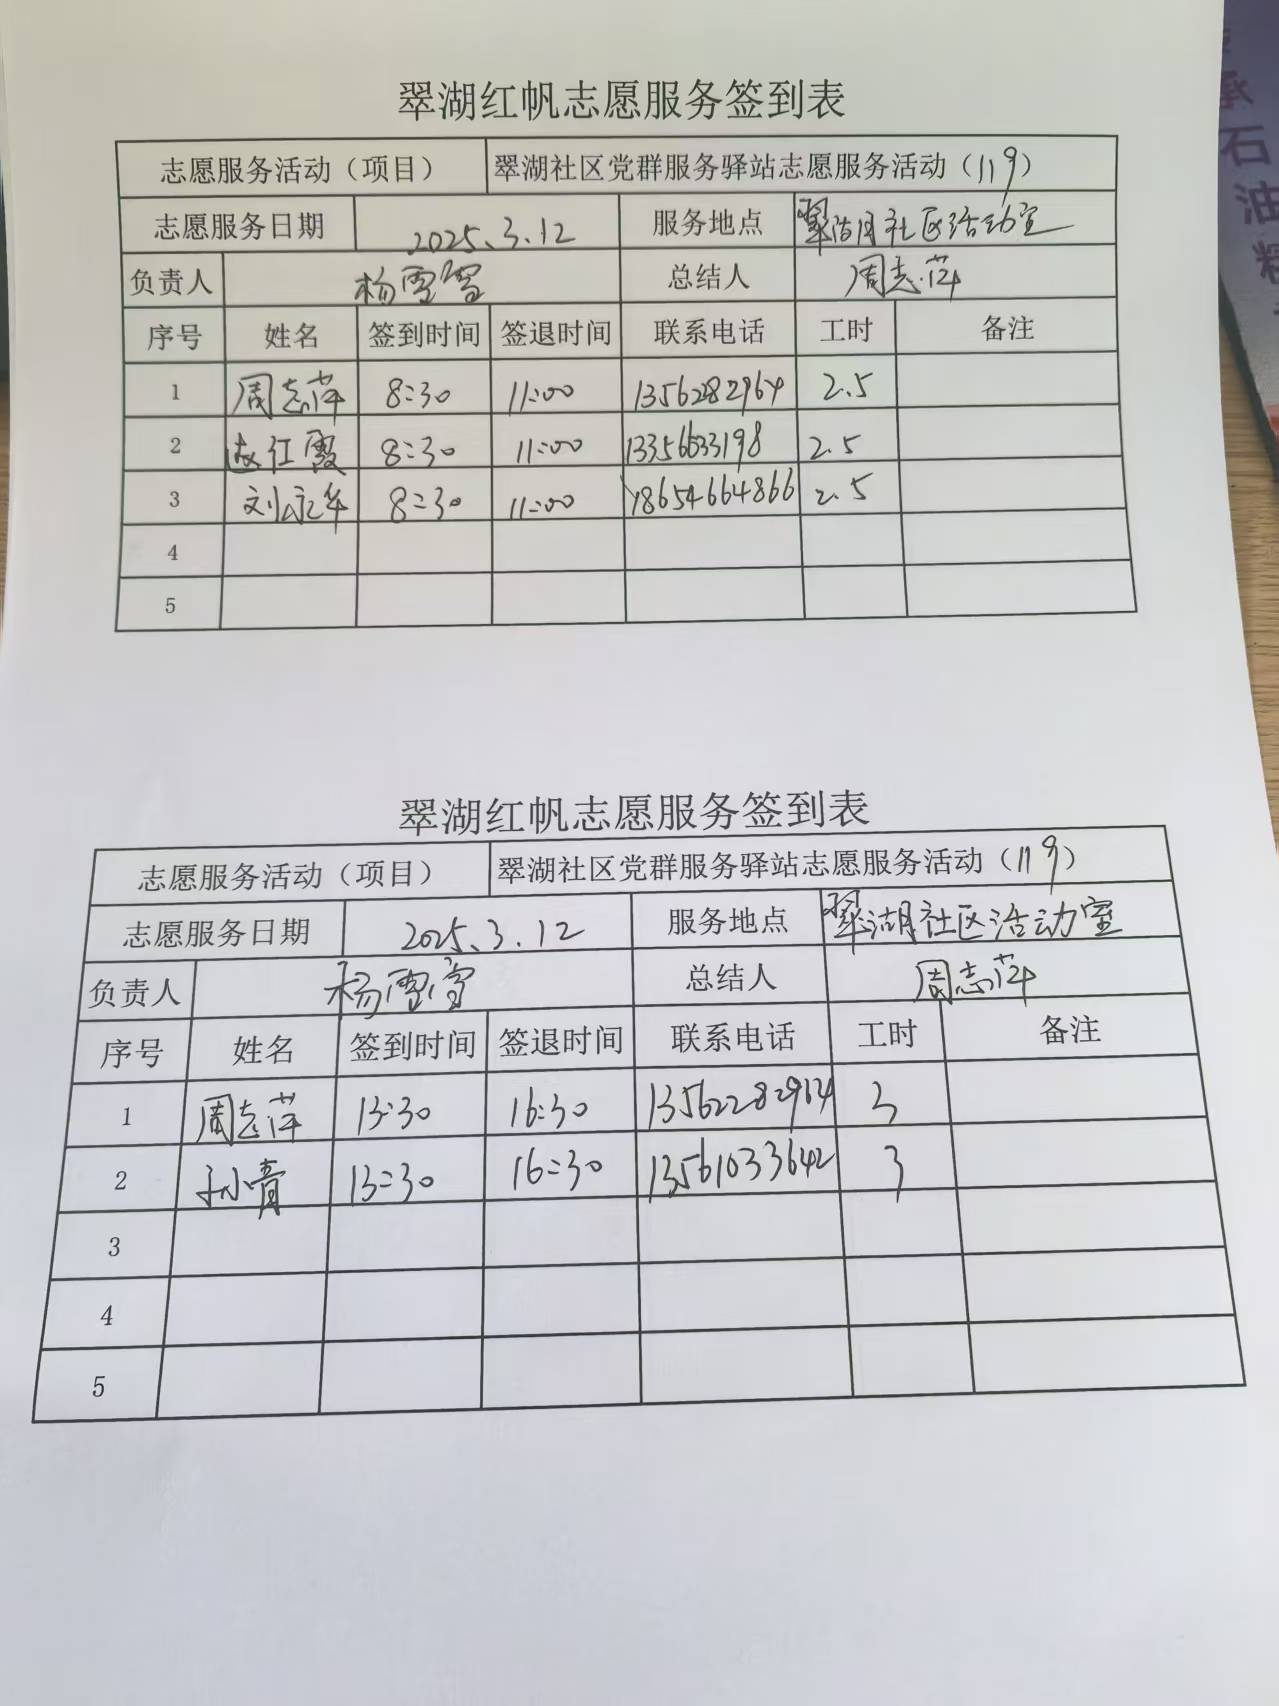 翠湖红帆志愿服务签到表
志愿服务活动（项目） 翠湖社区党群服务驿站志愿服务活动（119）
志愿服务日期 2025、3、12 服务地点 翠湖社区活动室
负责人 杨雪雪 总结人 周志萍
序号 姓名 签到时间 签退时间 联系电话 工时 备注
1 周志萍 8:30 11:00 13562282964 2.5
2 赵红霞 8:30 11:00 2.5
3 刘永华 8:30 11:00 18654664866 2.5
4
5
翠湖红帆志愿服务签到表
志愿服务活动（项目） 翠湖社区党群服务驿站志愿服务活动（119）
志愿服务日期 2025、3、12 服务地点 翠湖社区活动室
负责人 杨雪雪 总结人 周志萍
序号 姓名 签到时间 签退时间 联系电话 工时 备注
1 周志萍 13:30 16:30 13562282964 3
2 孙青 13:30 16:30 13561033642 3
3
4
5
石
油